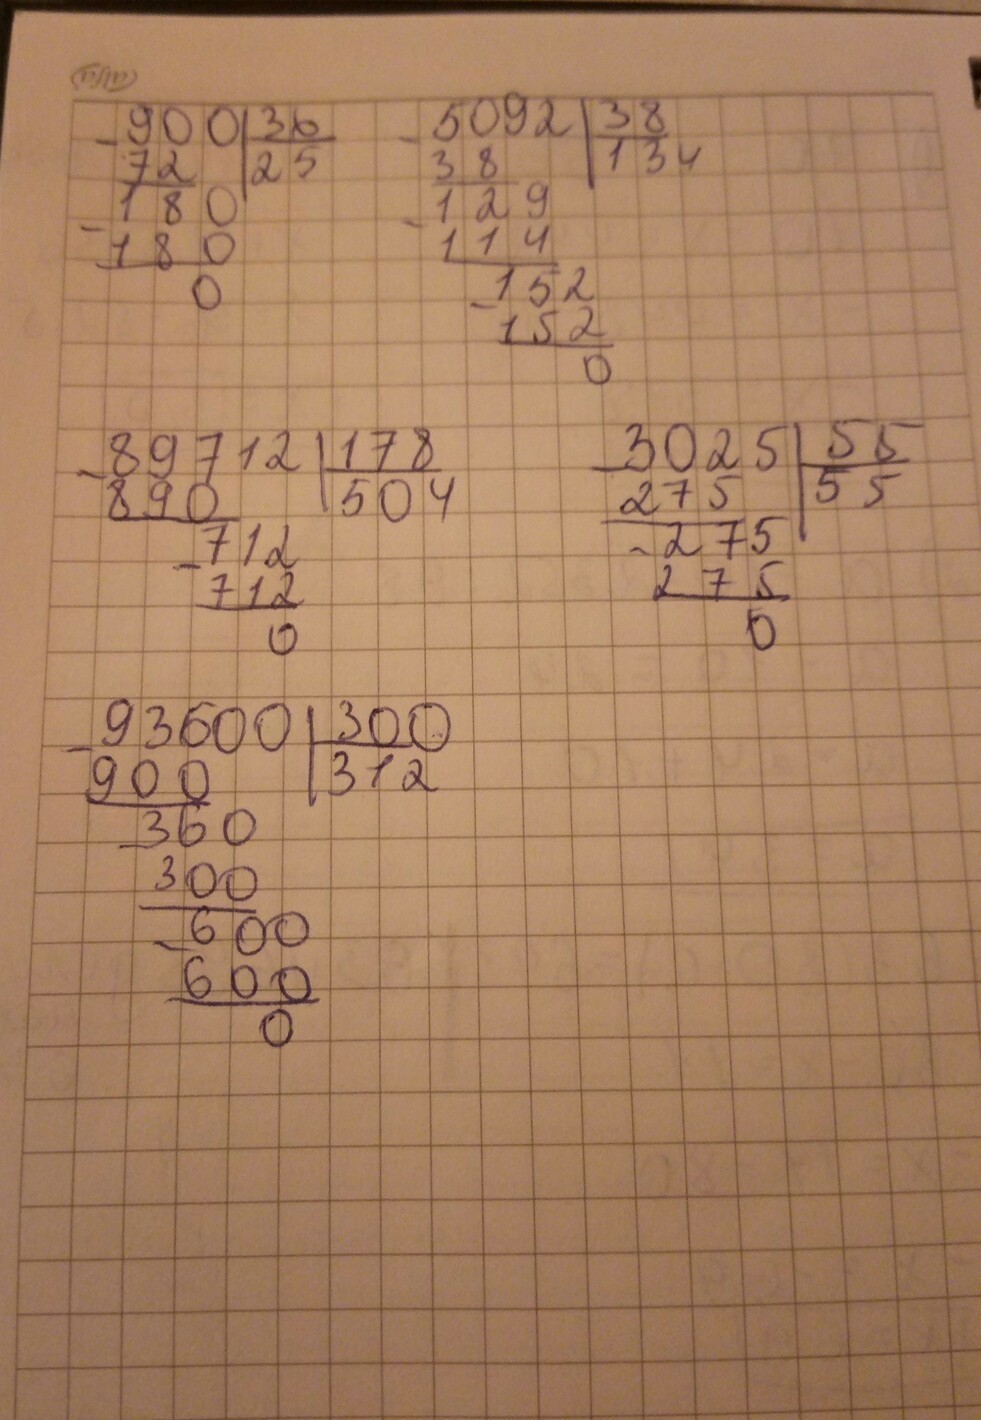 -900|36
72 |25
-180
180
0
-5092|38
38 |134
-129
114
-152
152
0
-89712|178
890 |504
-712
712
0
-3025|55
275 |55
-275
275
0
-93600|300
900 |312
-360
300
-600
600
0